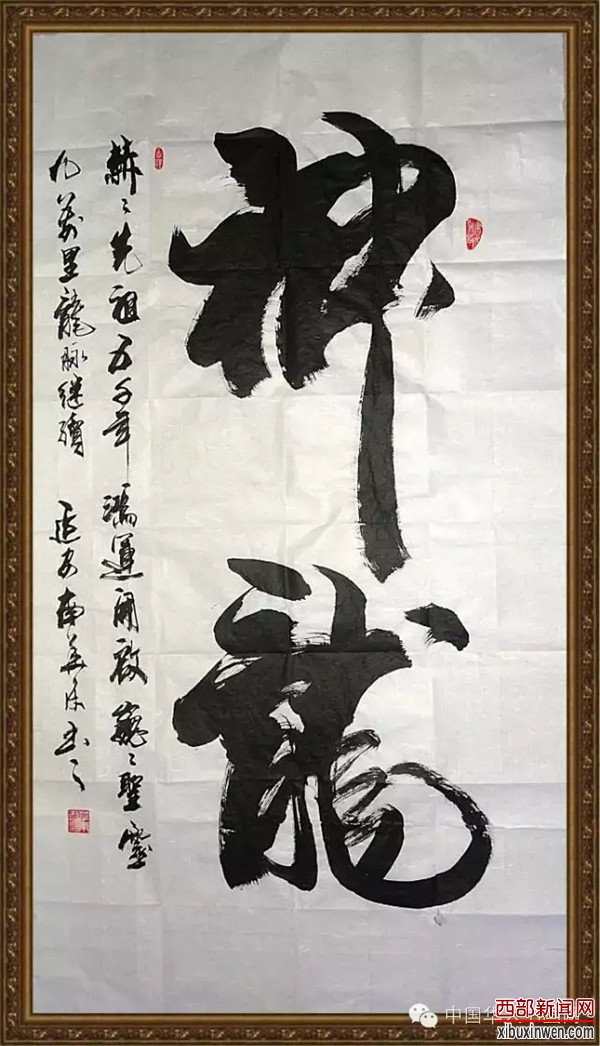 神龍
赫〻先祖五千年 鴻運開啟 巍〻聖靈
九萬里龍脉继續 延安南 书之
中国华
西部新闻网
xibuxinwen.com